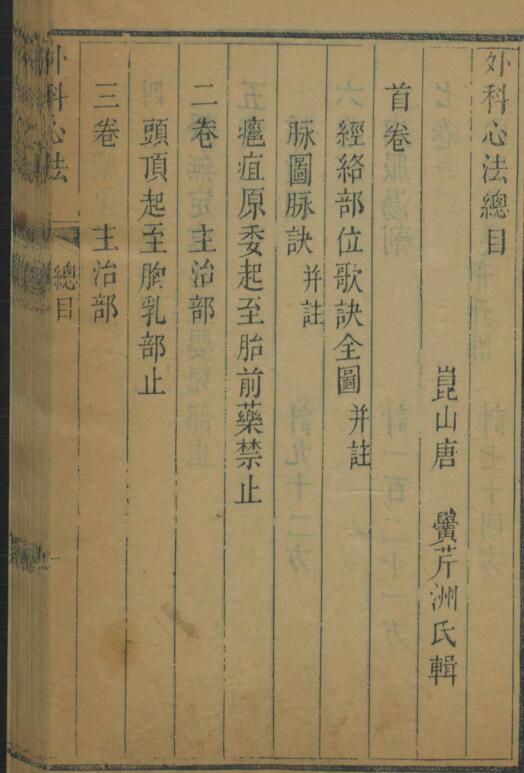 外科心法總目
崑山唐 黌芹洲氏輯
首卷
經絡部位歌訣全圖 并註
脉圖脉訣 并註
癰疽原委起至胎前藥禁止
二卷 主治部
頭頂起至胸乳部止
三卷 主治部
外科心法 總目